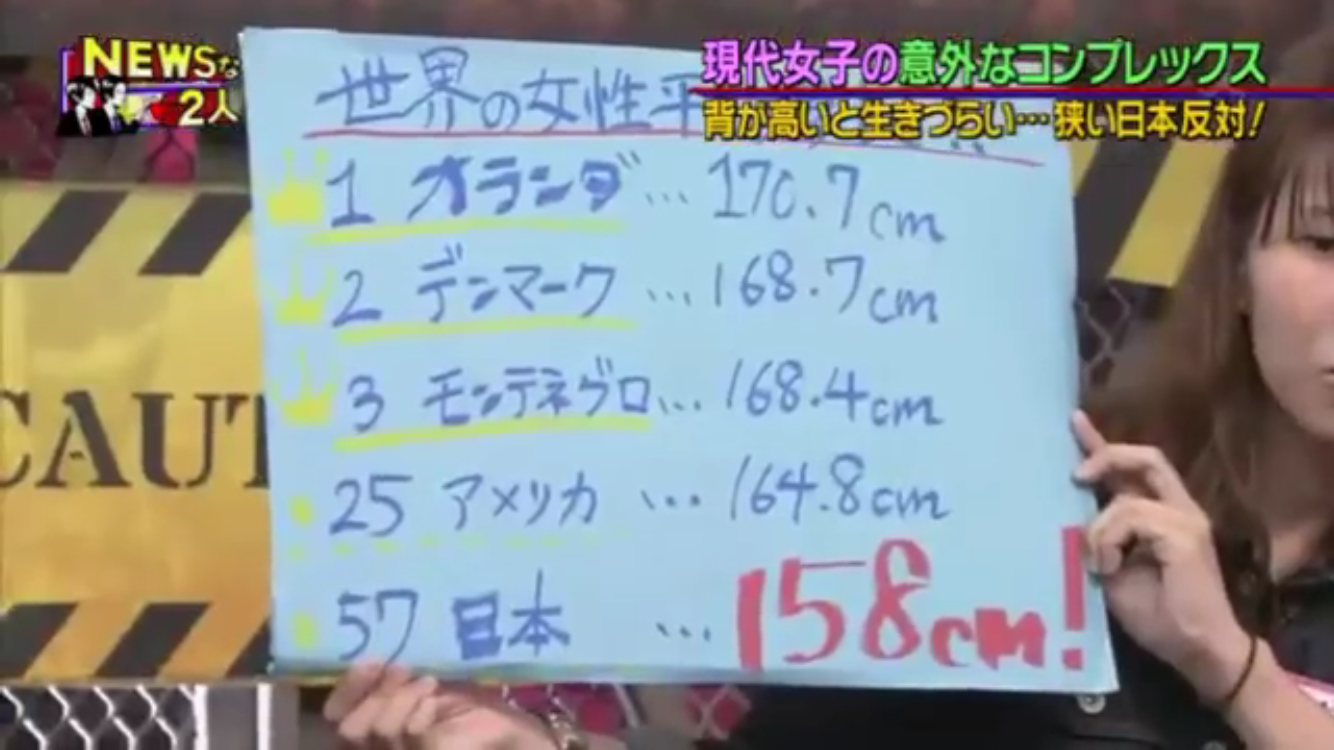 NEWSな
2人
現代女子の意外なコンプレックス
背が高いと生きづらい…狭い日本反対!
世界の女性平
1 オランダ … 170.7cm
2 デンマーク … 168.7cm
3 モンテネグロ … 168.4cm
25 アメリカ … 164.8cm
57 日本 … 158cm!
CAUT